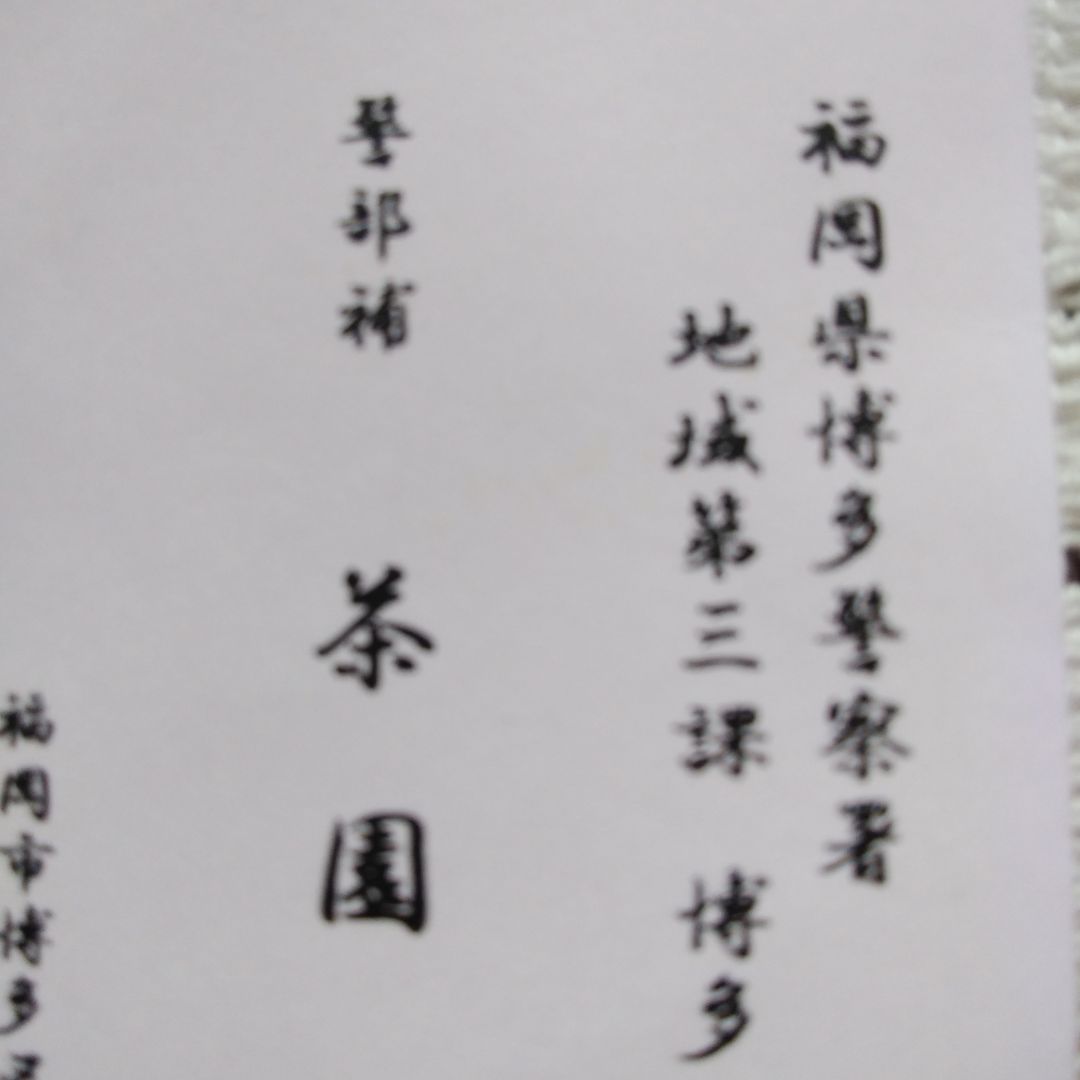 福岡県博多警察署
地域第三課　博多
警部補　茶園
福岡市博多